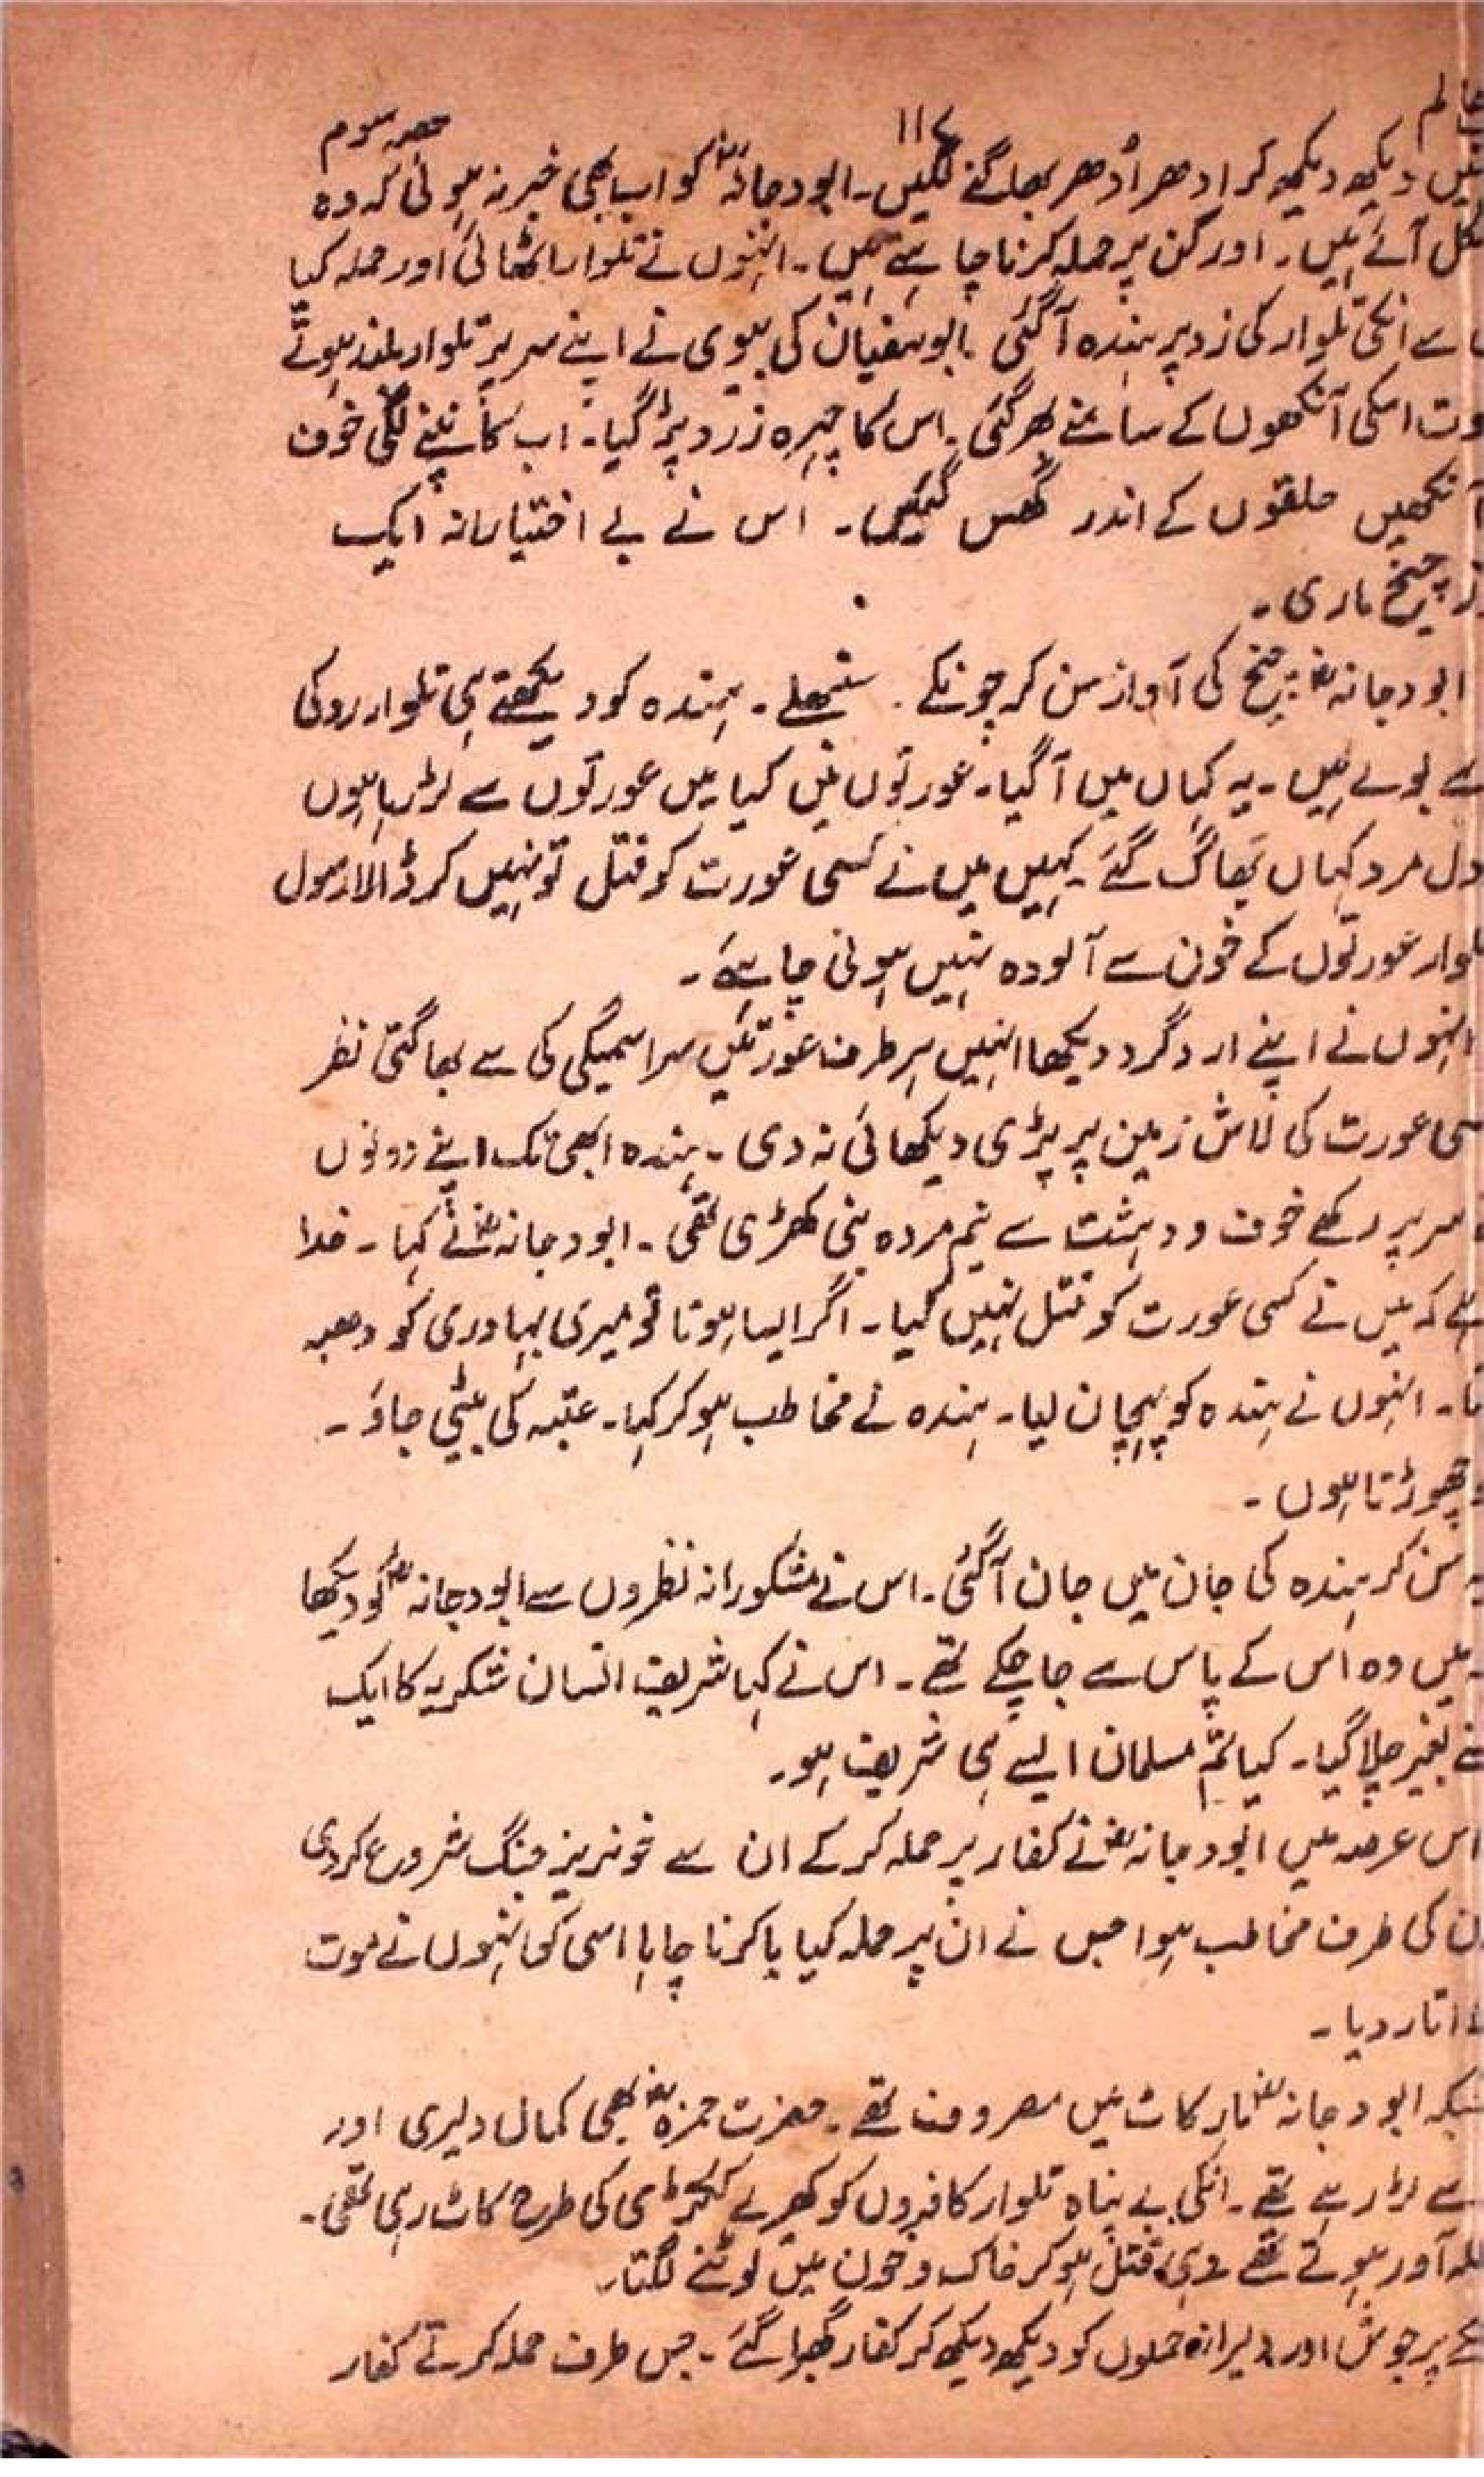 عالم ۱۱۷ حصہ سوم
دیکھ دیکھ کر ادھر اُدھر بھاگنے لگیں۔ ابودجانہؓ کو اب بھی خبر نہ ہوئی کہ وہ
آئے ہیں۔ اور کن پر حملہ کرنا چاہتے ہیں۔ انہوں نے تلوار اٹھائی اور حملہ کیا
سے انکی تلوار کی زد پر ہندہ آگئی ابوسفیان کی بیوی نے اپنے سر پر تلوار بلند ہوتے
اسکی آنکھوں کے سامنے پھر گئی۔ اس کا چہرہ زرد پڑ گیا۔ اب کانپنے لگی خوف
آنکھیں حلقوں کے اندر گھس گئیں۔ اس نے بے اختیارانہ ایک
چیخ ماری۔
ابودجانہؓ چیخ کی آواز سن کر چونکے۔ سنبھلے۔ ہندہ کو دیکھتے ہی تلوار روکی
سے بولے ہیں۔ یہ کہاں میں آگیا۔ عورتوں میں کیا میں عورتوں سے لڑ رہا ہوں
دل مرد کہاں بھاگ گئے۔ کہیں میں نے کسی عورت کو قتل تو نہیں کر ڈالا رسول
تلوار عورتوں کے خون سے آلودہ نہیں ہونی چاہئے۔
انہوں نے اپنے ارد گرد دیکھا انہیں ہر طرف عورتیں سراسمیگی کی سے بھاگتی نظر
عورت کی لاش زمین پر پڑی دیکھائی نہ دی۔ ہندہ ابھی تک اپنے دونوں
سر پر رکھے خوف و دہشت سے نیم مردہ بنی کھڑی تھی۔ ابودجانہؓ نے کہا۔ خدا
کہ میں نے کسی عورت کو قتل نہیں کیا۔ اگر ایسا ہوتا تو میری بہادری کو دھبہ
انہوں نے ہندہ کو پہچان لیا۔ ہندہ نے مخاطب ہو کر کہا۔ عتبہ کی بیٹی جاؤ۔
چھوڑتا ہوں۔
سن کر ہندہ کی جان میں جان آگئی۔ اس نے مشکورانہ نظروں سے ابودجانہؓ کو دیکھا
میں وہ اس کے پاس سے جا چکے تھے۔ اس نے کہا شریف انسان شکریہ کا ایک
بغیر چلا گیا۔ کیا تم مسلمان ایسے ہی شریف ہو۔
اس عرصہ میں ابودجانہؓ نے کفار پر حملہ کر کے ان سے خونریز جنگ شروع کر دی
ان کی طرف مخاطب ہوا جس نے ان پر حملہ کیا یا کرنا چاہا اسی کو انہوں نے موت
اتار دیا۔
جبکہ ابودجانہؓ مار کاٹ میں مصروف تھے۔ حضرت حمزہؓ بھی کمال دلیری اور
سے لڑ رہے تھے۔ انکی بے پناہ تلوار کافروں کو کھیرے ککڑی کی طرح کاٹ رہی تھی۔
آور ہوتے تھے وہی قتل ہو کر خاک و خون میں لوٹنے لگتا۔
پرجوش اور دلیرانہ حملوں کو دیکھ دیکھ کر کفار گھبرا گئے۔ جس طرف حملہ کرتے کفار